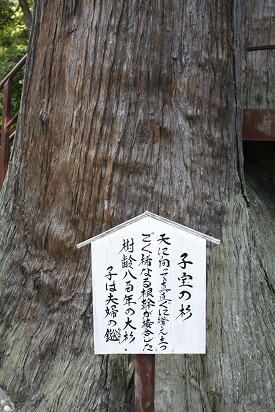 子宝の杉
天に向って真直ぐに聳え立つ
ごく稀なる根幹が接合した
樹齢八百年の大杉
子は夫婦の鎹